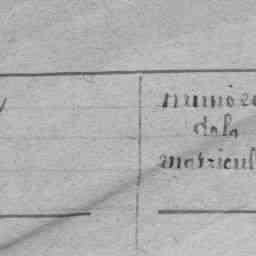 numéro
de la
matricul